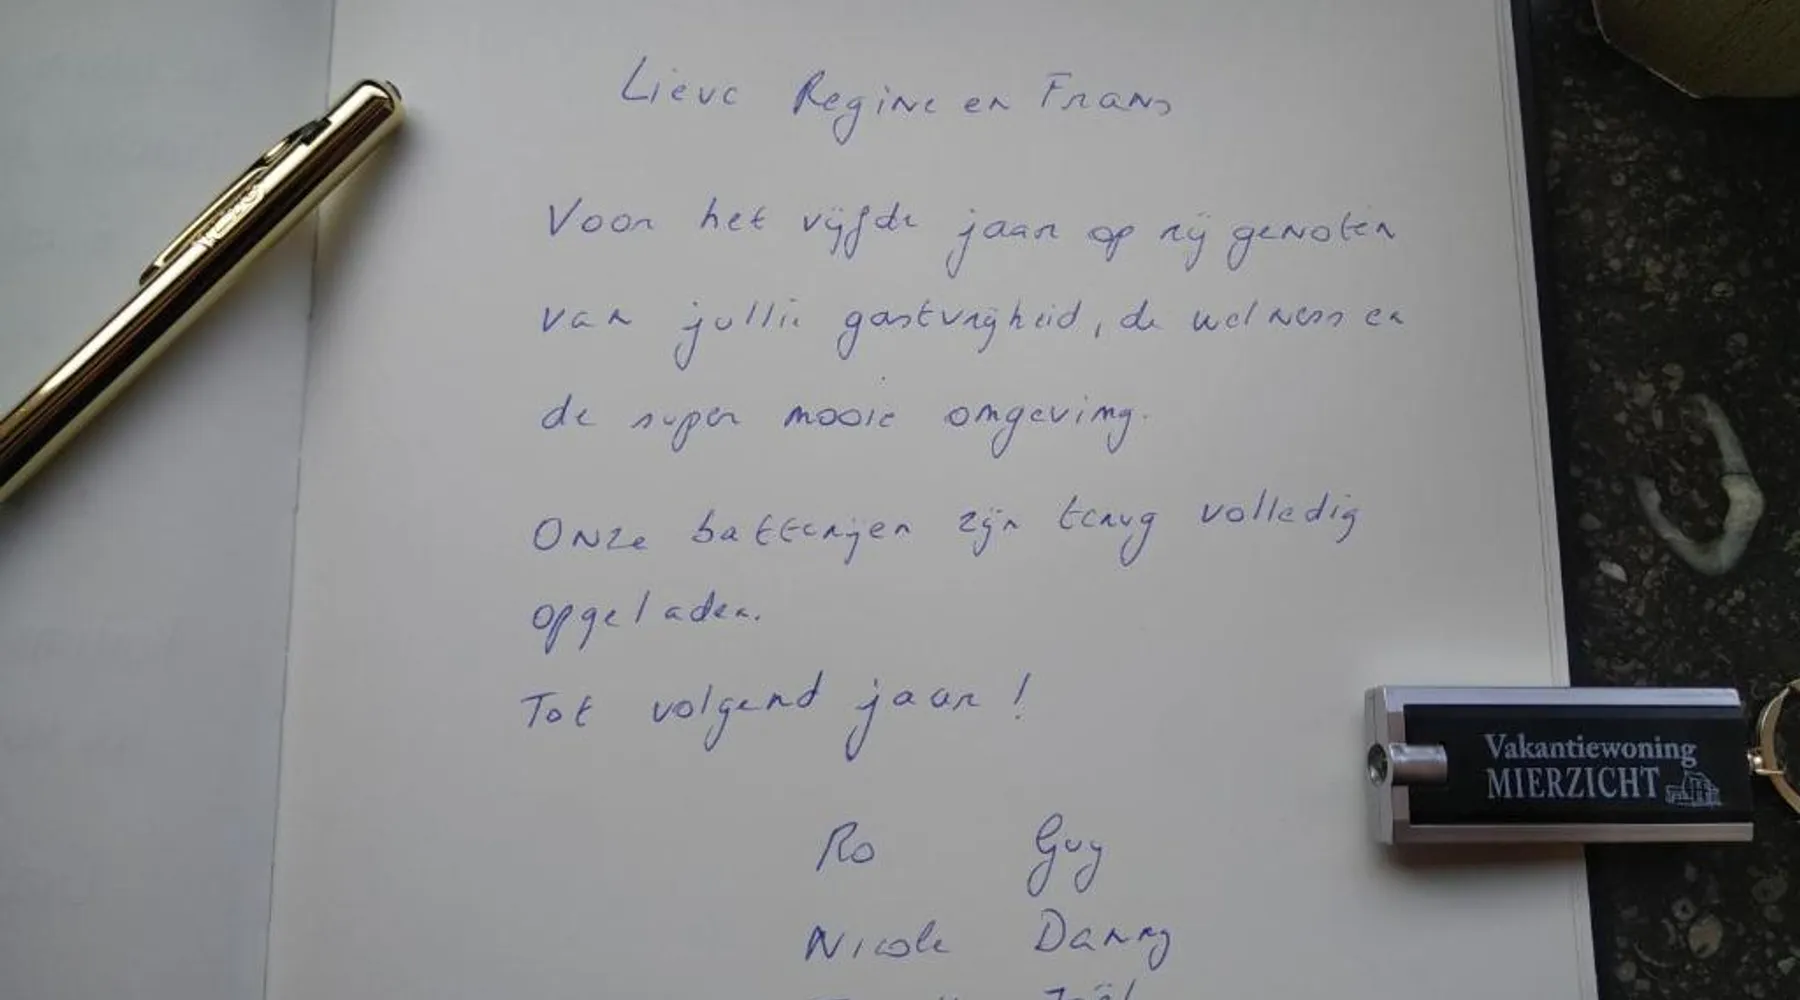 Lieve Regine en Frans
Voor het vijfde jaar op rij genoten
van jullie gastvrijheid, de welness en
de super mooie omgeving.
Onze batterijen zijn terug volledig
opgeladen.
Tot volgend jaar!
Vakantiewoning
MIERZICHT
Ro Guy
Nicole Danny